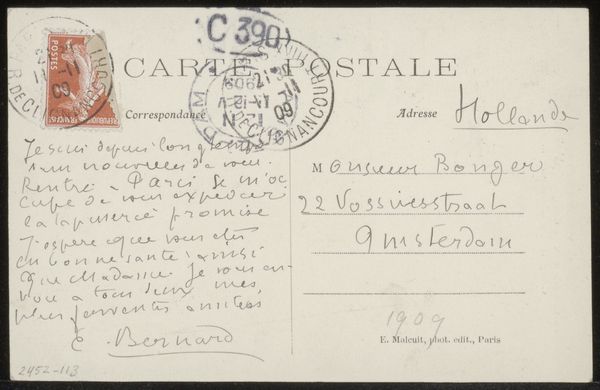 C 390
CARTE POSTALE
Correspondance
Adresse
Hollande
POSTES
09
Je suis depuis longtemps
sans nouvelles de vous.
Rentré à Paris je m'oc
cupe de vous expédier
la tapisserie promise
J'espère que vous êtes
en bonne santé ainsi
que Madame. Je vous en-
voie a tous deux mes
plus ferventes amitiés
E. Bernard
Monsieur Bonger
22 Vossiusstraat
Amsterdam
1909
E. Malcuit, phot. edit., Paris
2452-113